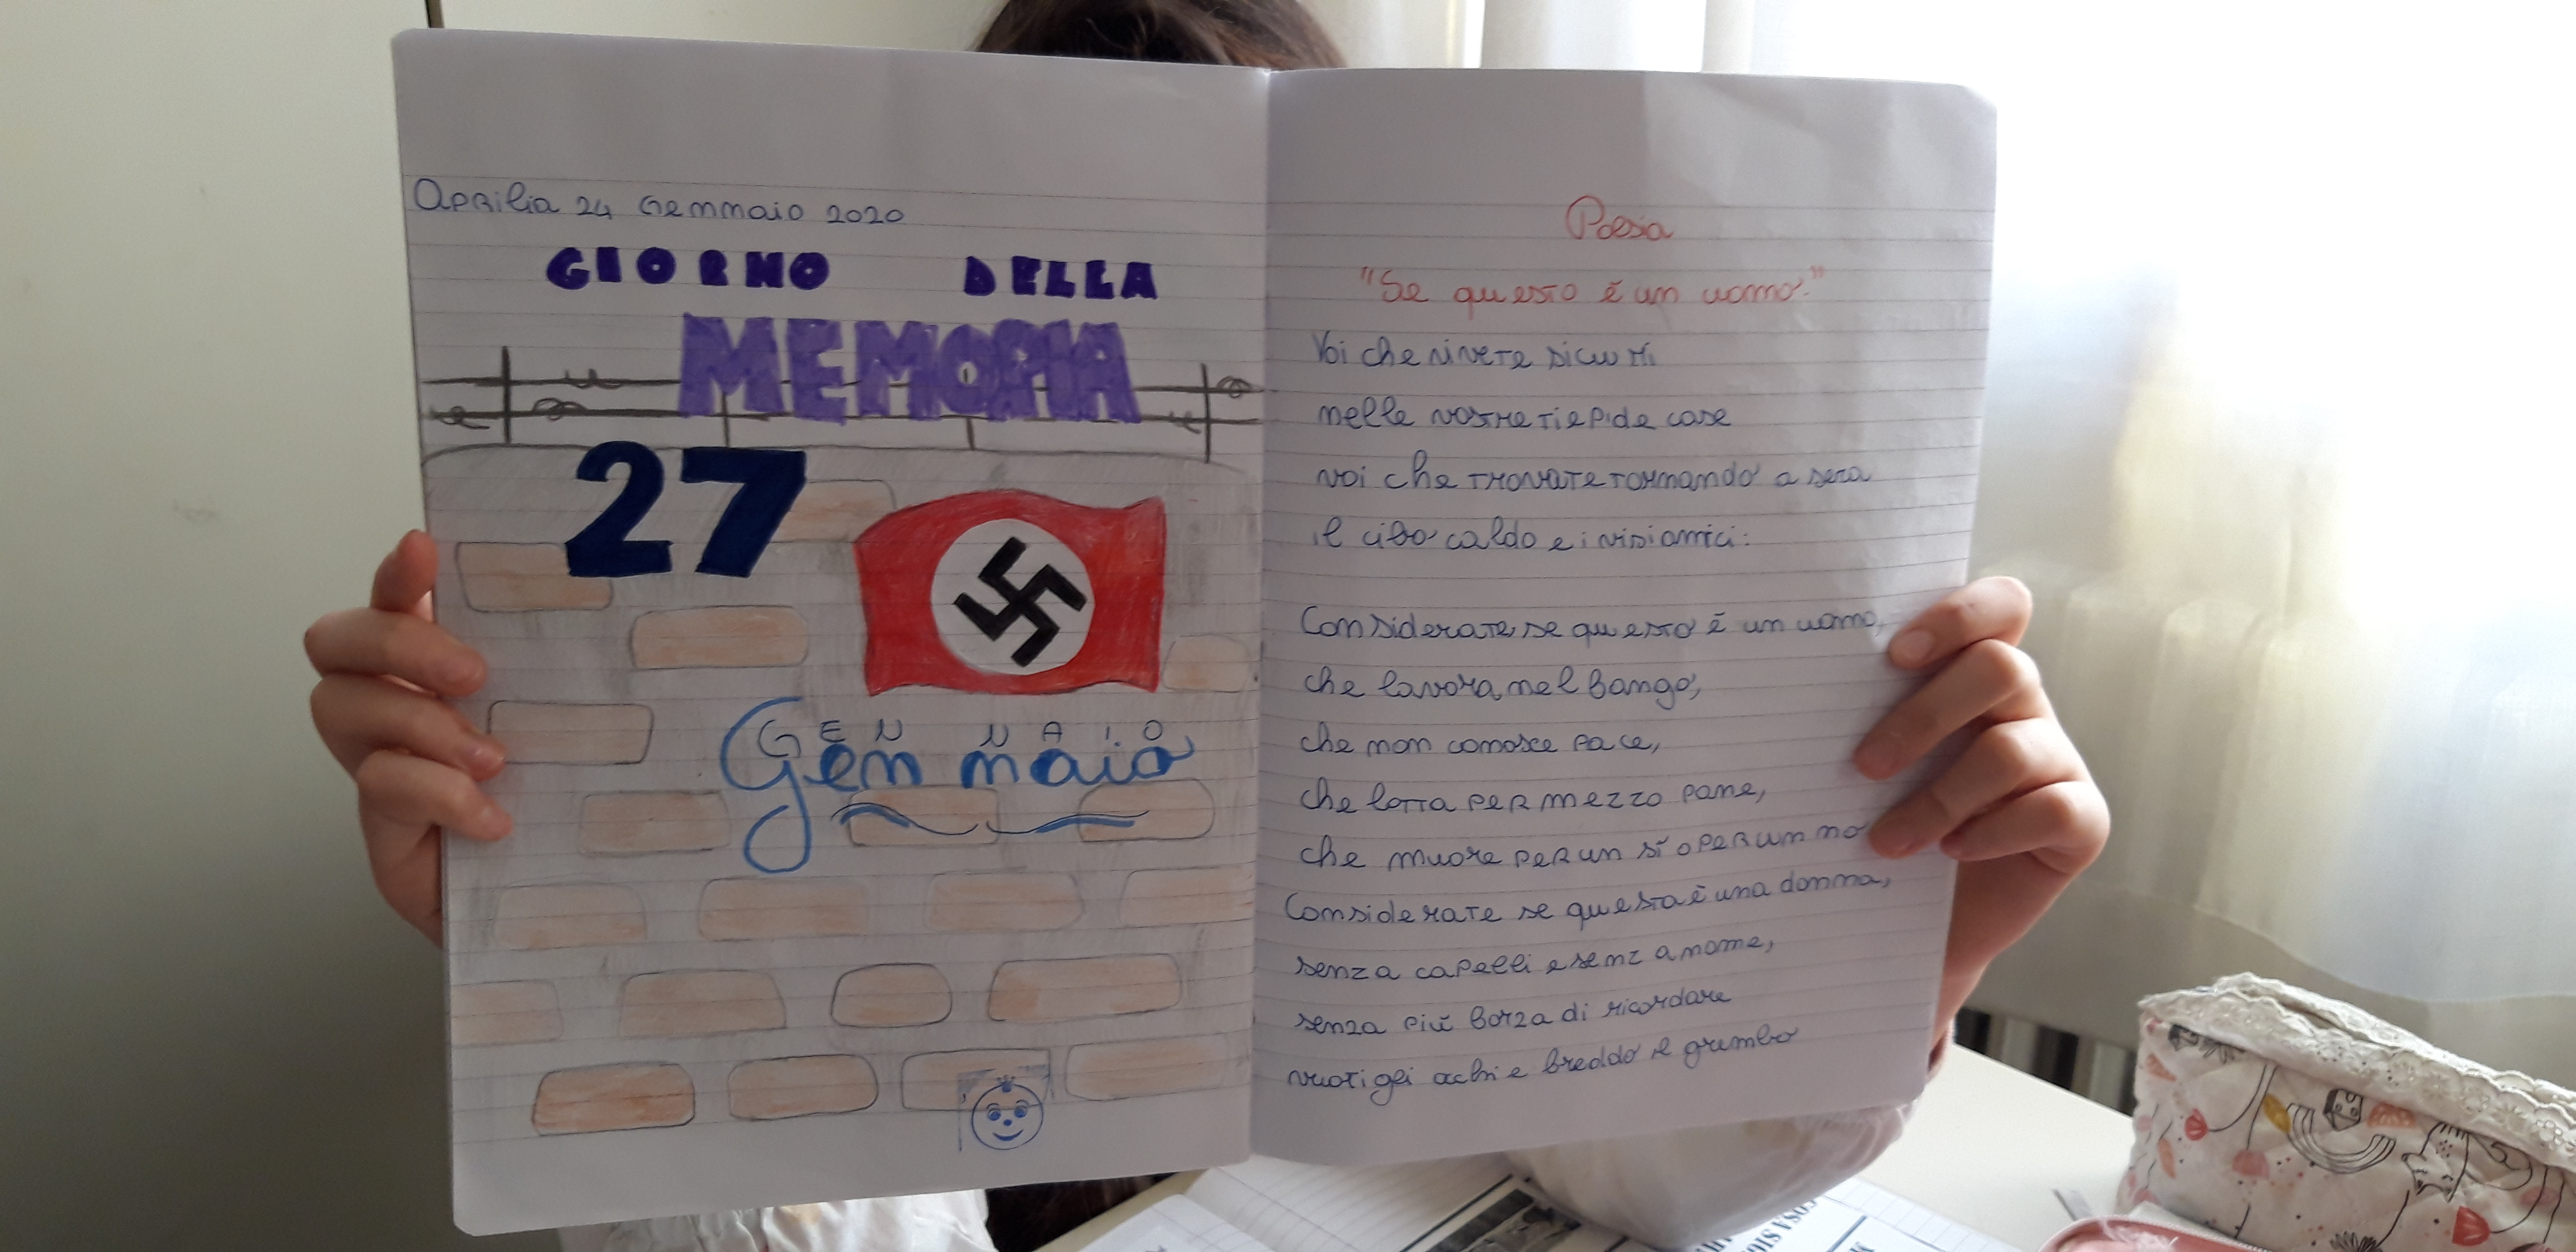 Aprilia 24 Gennaio 2020
GIORNO DELLA
MEMORIA
27
GENNAIO
Gennaio
Poesia
"Se questo è un uomo."
Voi che vivete sicuri
nelle vostre tiepide case
voi che trovate tornando a sera
il cibo caldo e i visi amici:
Considerate se questo è un uomo,
che lavora, nel fango,
che non conosce pace,
che lotta per mezzo pane,
che muore per un sì o per un no
Considerate se questa è una donna,
senza capelli e senza nome,
senza più forza di ricordare
vuoti gli occhi e freddo il grembo
COSA SI